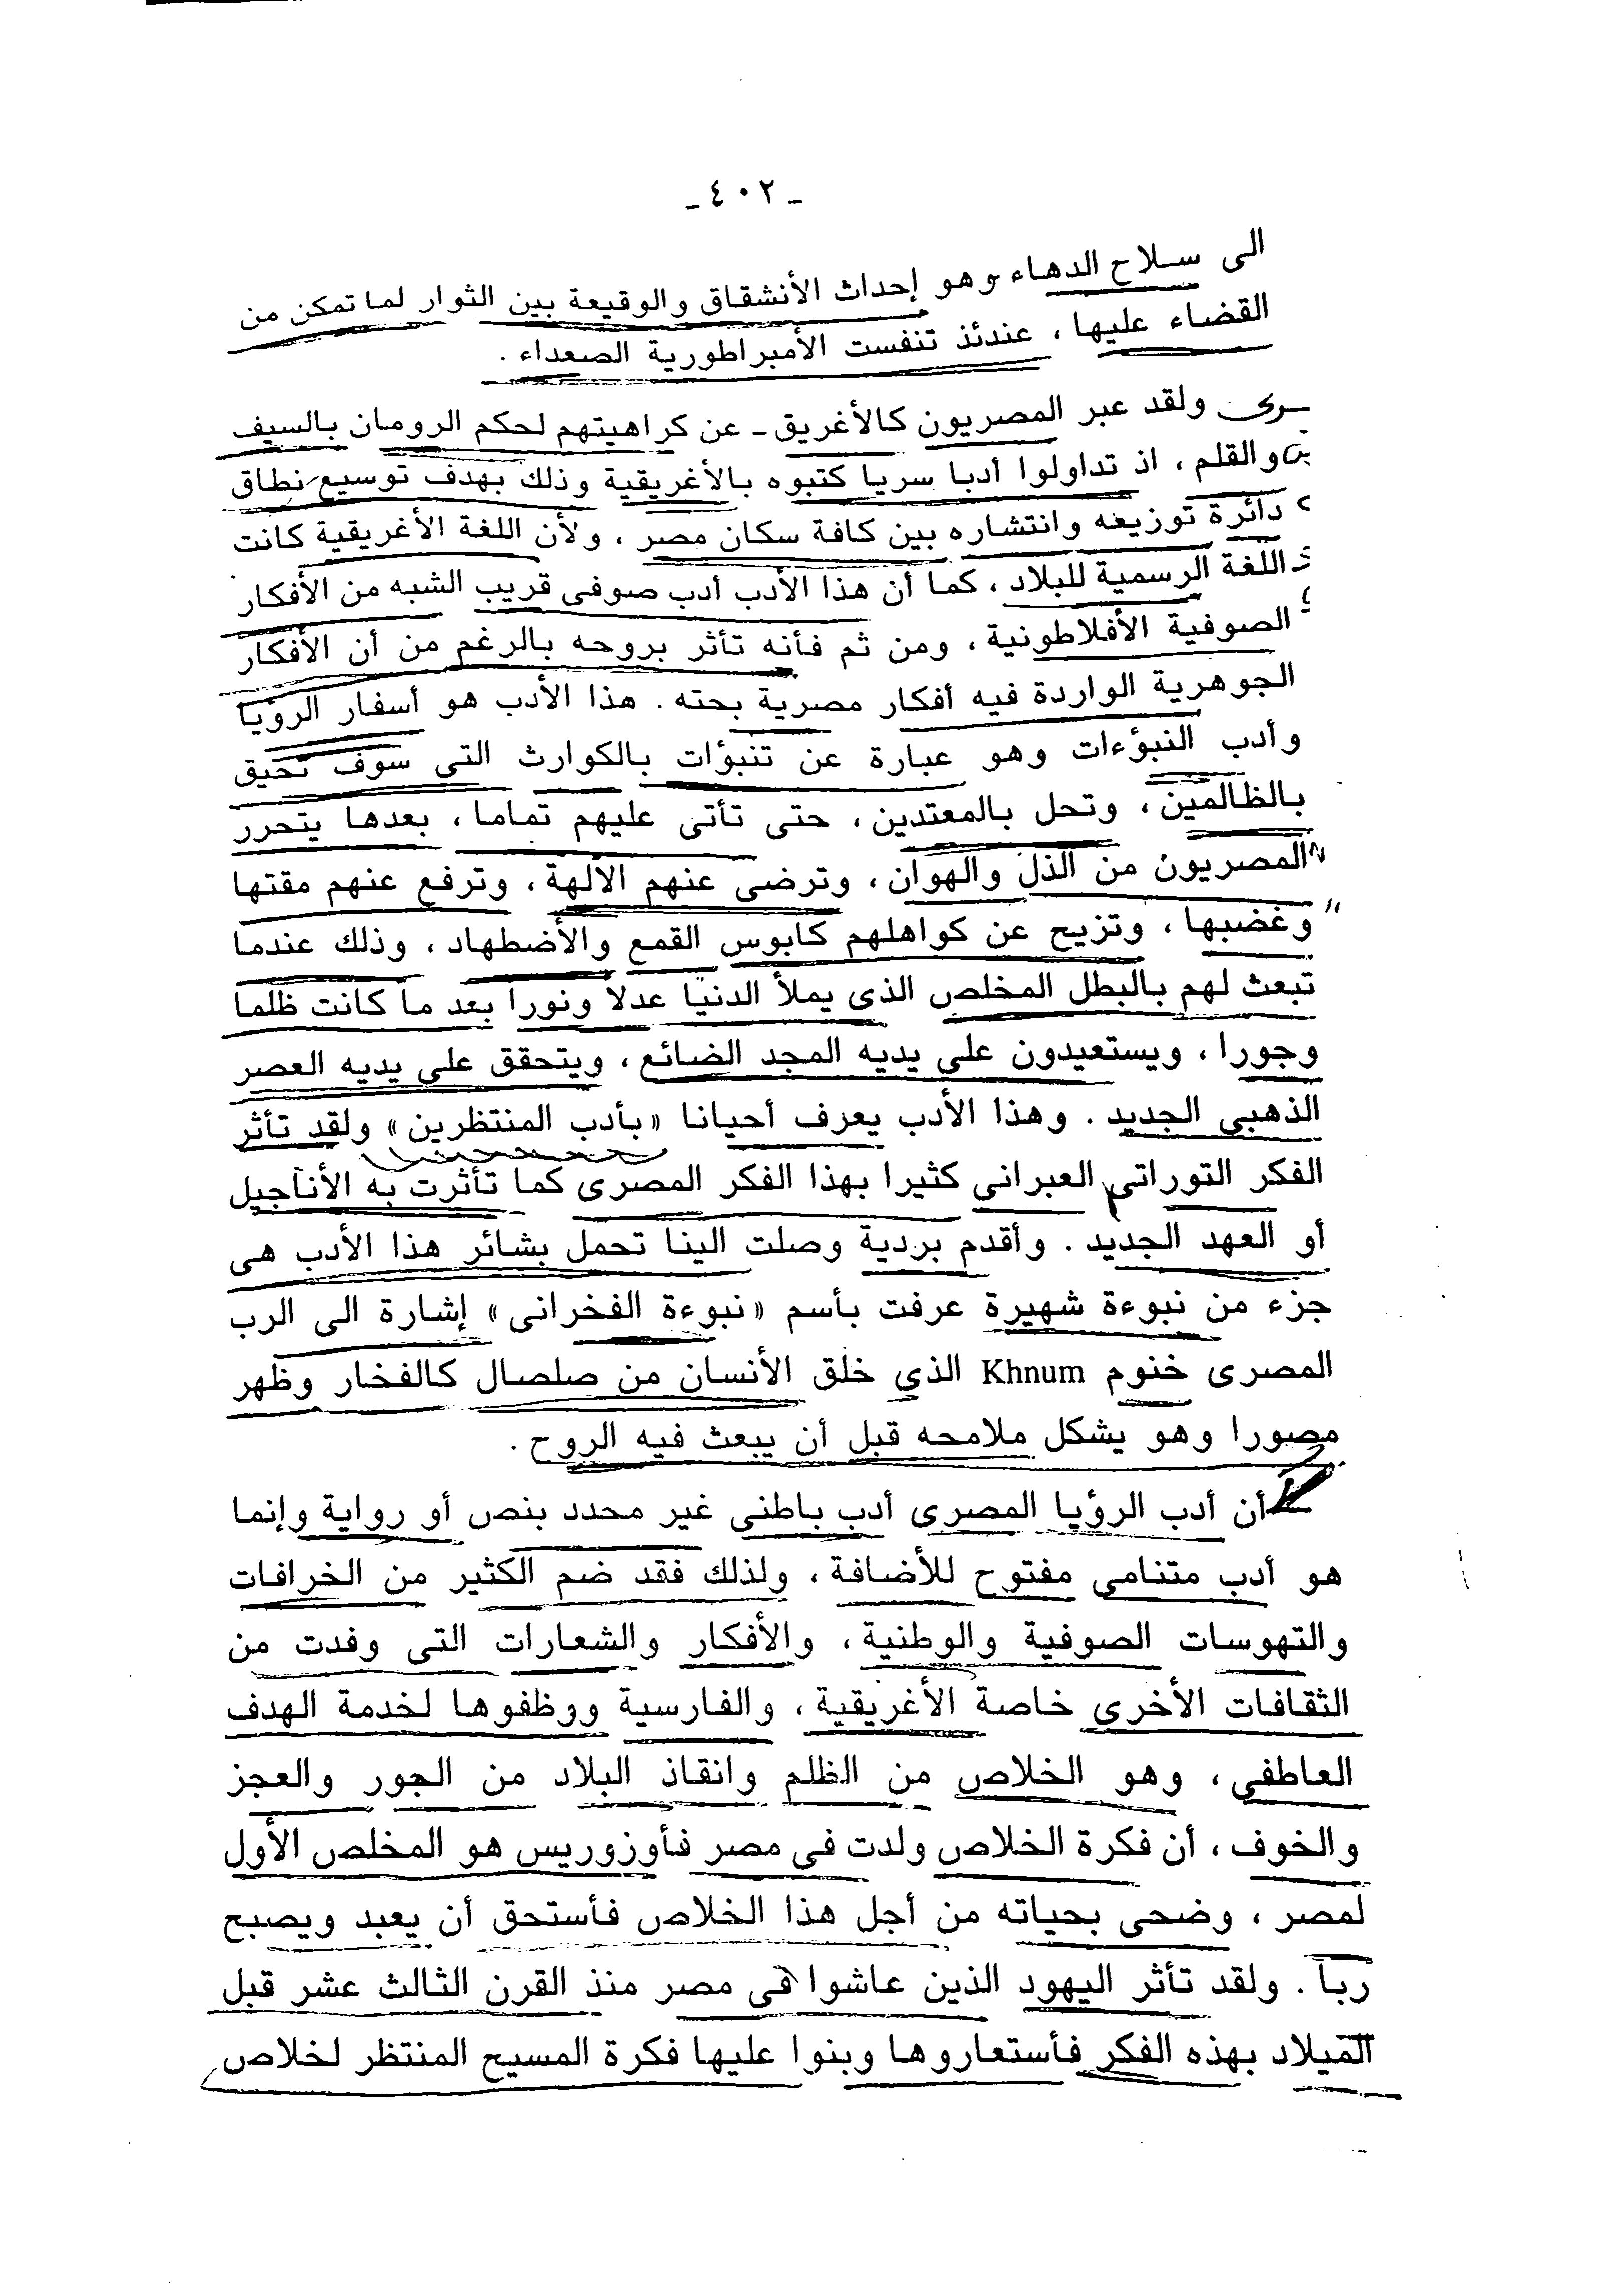 ـ ٤٠٢ ـ
الى سلاح الدهاء وهو إحداث الأنشقاق والوقيعة بين الثوار لما تمكن من
القضاء عليها ، عندئذ تنفست الأمبراطورية الصعداء .
ولقد عبر المصريون كالأغريق ـ عن كراهيتهم لحكم الرومان بالسيف
والقلم ، اذ تداولوا أدبا سريا كتبوه بالأغريقية وذلك بهدف توسيع نطاق
دائرة توزيعه وانتشاره بين كافة سكان مصر ، ولأن اللغة الأغريقية كانت
اللغة الرسمية للبلاد ، كما أن هذا الأدب أدب صوفى قريب الشبه من الأفكار
الصوفية الأفلاطونية ، ومن ثم فأنه تأثر بروحه بالرغم من أن الأفكار
الجوهرية الواردة فيه أفكار مصرية بحته . هذا الأدب هو أسفار الرؤيا
وأدب النبؤءات وهو عبارة عن تنبؤات بالكوارث التى سوف تحيق
بالظالمين ، وتحل بالمعتدين ، حتى تأتى عليهم تماما ، بعدها يتحرر
المصريون من الذل والهوان ، وترضى عنهم الآلهة ، وترفع عنهم مقتها
وغضبها ، وتزيح عن كواهلهم كابوس القمع والأضطهاد ، وذلك عندما
تبعث لهم بالبطل المخلص الذى يملأ الدنيا عدلا ونورا بعد ما كانت ظلما
وجورا ، ويستعيدون على يديه المجد الضائع ، ويتحقق على يديه العصر
الذهبي الجديد . وهذا الأدب يعرف أحيانا « بأدب المنتظرين » ولقد تأثر
الفكر التوراتي العبرانى كثيرا بهذا الفكر المصرى كما تأثرت به الأناجيل
أو العهد الجديد . وأقدم بردية وصلت الينا تحمل بشائر هذا الأدب هى
جزء من نبوءة شهيرة عرفت بأسم « نبوءة الفخرانى » إشارة الى الرب
المصرى خنوم Khnum الذي خلق الأنسان من صلصال كالفخار وظهر
مصورا وهو يشكل ملامحه قبل أن يبعث فيه الروح .
أن أدب الرؤيا المصرى أدب باطنى غير محدد بنص أو رواية وإنما
هو أدب متنامى مفتوح للأضافة ، ولذلك فقد ضم الكثير من الخرافات
والتهوسات الصوفية والوطنية ، والأفكار والشعارات التى وفدت من
الثقافات الأخرى خاصة الأغريقية ، والفارسية ووظفوها لخدمة الهدف
العاطفي ، وهو الخلاص من الظلم وانقاذ البلاد من الجور والعجز
والخوف ، أن فكرة الخلاص ولدت فى مصر فأوزوريس هو المخلص الأول
لمصر ، وضحى بحياته من أجل هذا الخلاص فأستحق أن يعبد ويصبح
ربا . ولقد تأثر اليهود الذين عاشوا فى مصر منذ القرن الثالث عشر قبل
الميلاد بهذه الفكر فأستعاروها وبنوا عليها فكرة المسيح المنتظر لخلاص